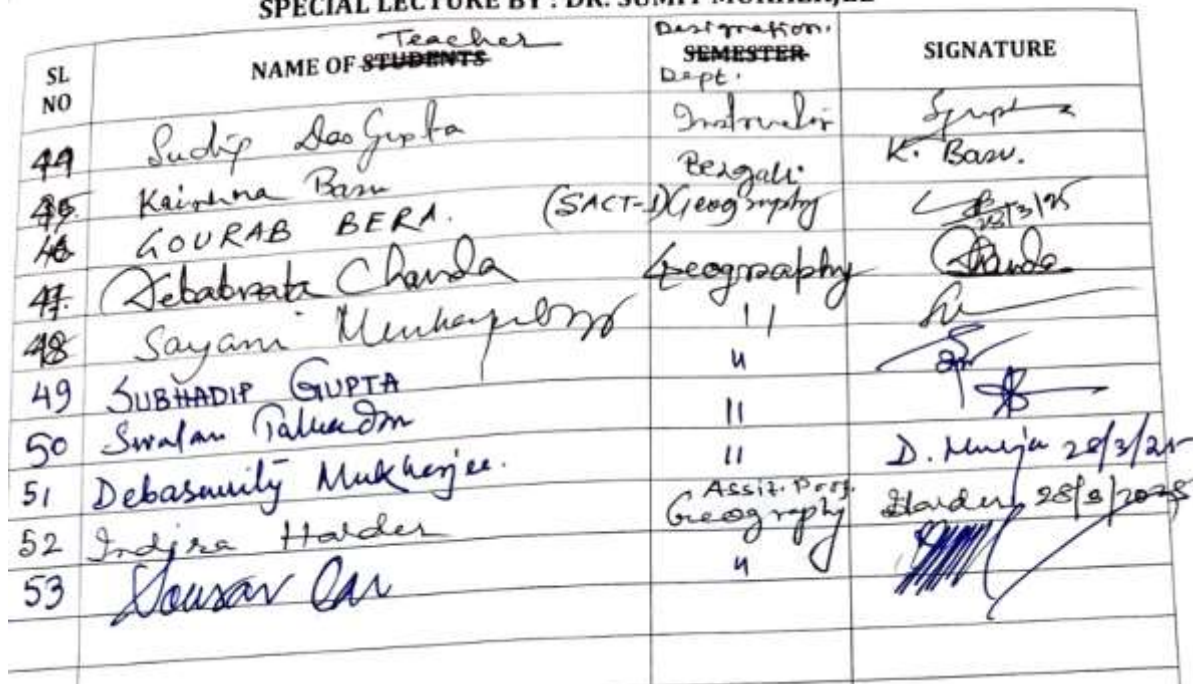 SPECIAL LECTURE BY : DR. SUMIT MUKHERJEE
SL NO NAME OF STUDENTS Teacher SEMESTER Designation. Dept. SIGNATURE
44 Sudip Das Gupta Instructor
45. Krishna Basu Bengali. K. Basu.
46 GOURAB BERA. (SACT-I) Geography 28/3/25
47. Debabrata Chanda Geography Chanda
48 Sayani Mukhopadhyay 11
49 SUBHADIP GUPTA 11
50 Swapan Talukdar 11
51 Debasmity Mukherjee. 11 D. Mukherjee 28/3/25
52 Indira Halder Assit. Prof. Geography Halder 28/3/2025
53 11